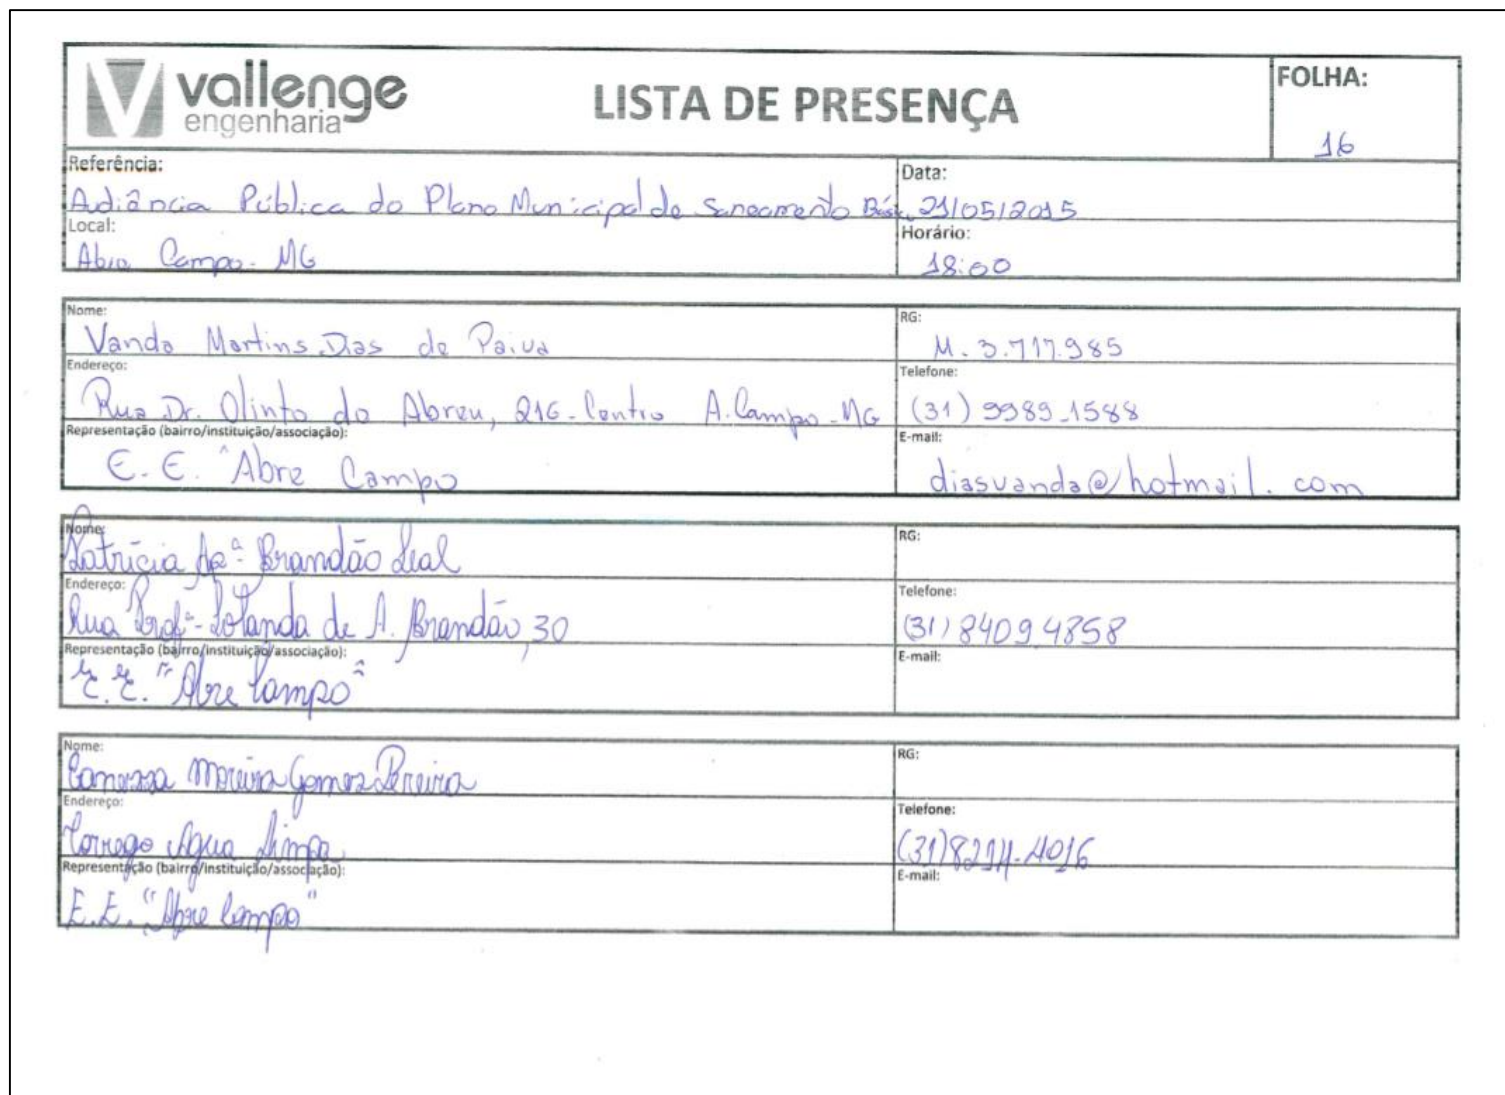 vallenge
engenharia
LISTA DE PRESENÇA
FOLHA:
16
Referência:
Audiância Pública do Plano Municipal de Saneamento Bás.
Data:
21/05/2015
Local:
Abre Campo - MG
Horário:
18:00
Nome:
Vanda Martins Dias de Paiva
RG:
M. 3.717.985
Endereço:
Rua Dr. Olinto do Abreu, 216 - Centro A. Campo - MG
Telefone:
(31) 9989-1588
Representação (bairro/instituição/associação):
E. E. "Abre Campo
E-mail:
diasvanda@hotmail.com
Nome:
Patrícia Apª Brandão Leal
RG:
Endereço:
Rua Profª Iolanda de A. Brandão, 30
Telefone:
(31) 8409 4858
Representação (bairro/instituição/associação):
E. E. "Abre Campo"
E-mail:
Nome:
Moreira Gomes Pereira
RG:
Endereço:
Corrego Agua Limpa
Telefone:
(31)
Representação (bairro/instituição/associação):
E. E. "Abre Campo"
E-mail: